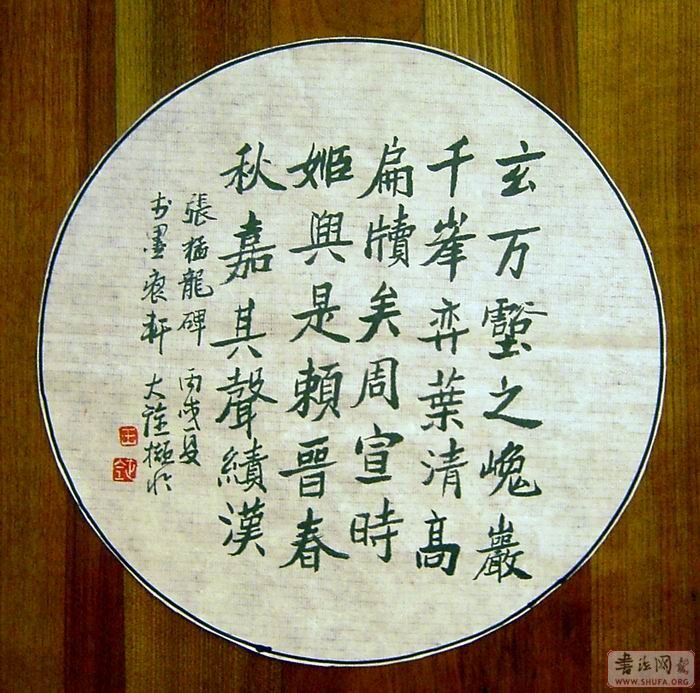 玄万壑之嵬巖
千峯弈葉清高
扁牘矣周宣時
姬興是賴晉春
秋嘉其聲績漢
張猛龍碑 丙戌夏
书墨 軒 大 於
王
書法网
WWW.SHUFA.ORG